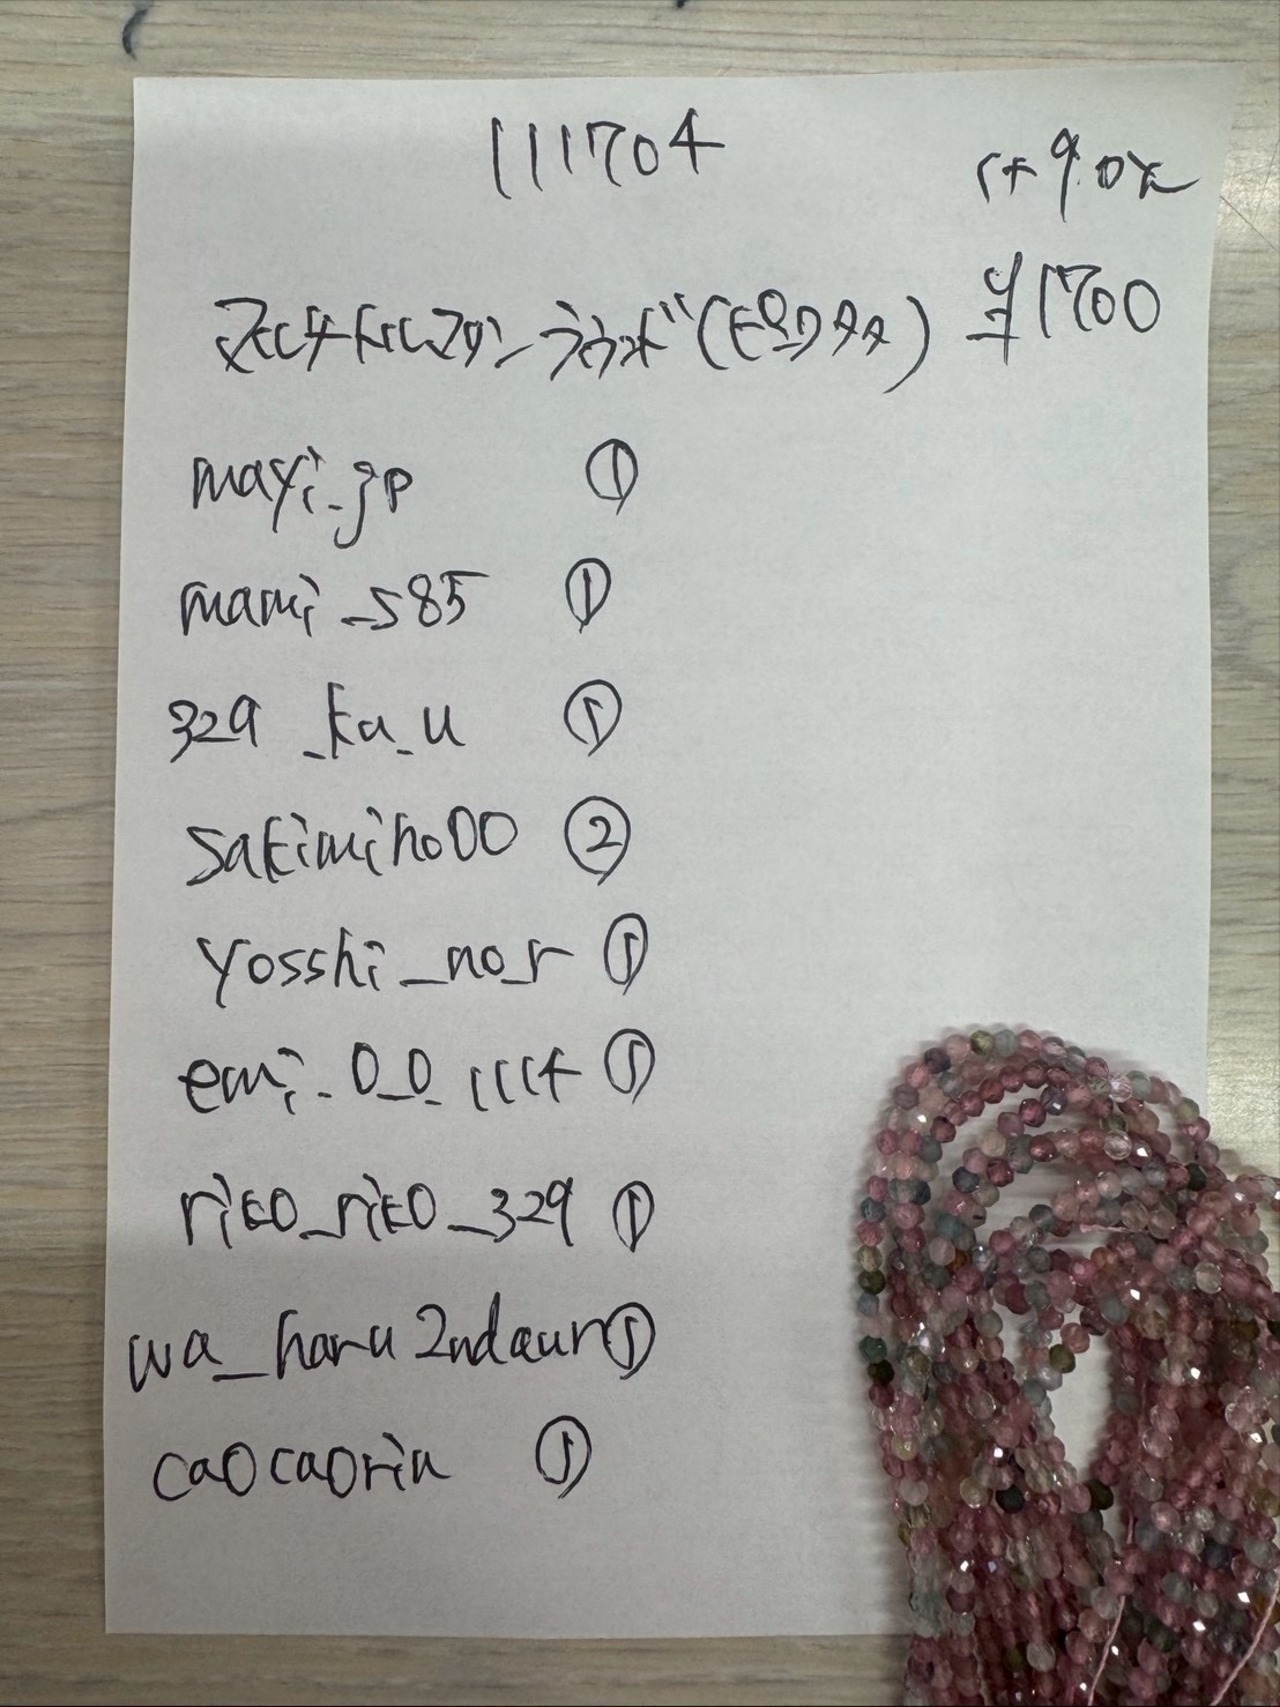 111704
¥1700
マルチトルマリン ラウンド(ピンク系)
mayi_jp ①
mami_s85 ①
329_ka_u ①
sakimiho00 ②
yosshi_no_r ①
emi_0_0_1114 ①
riko_riko_329 ①
wa_haru2ndaur ①
caocaorin ①